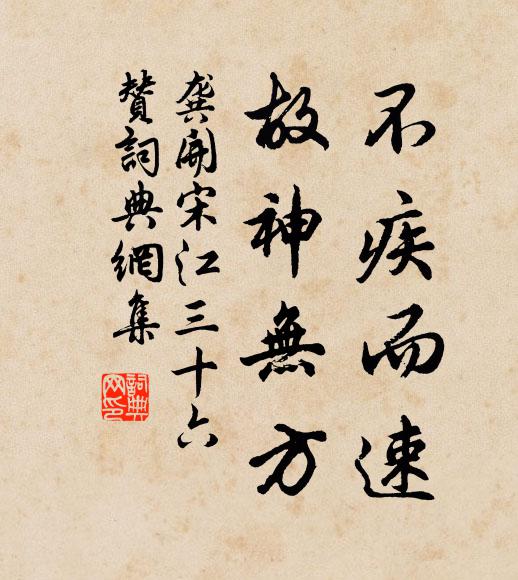 不疾而速
故神無方
龔開宋江三十六
贊詞典網集
詞典
网印